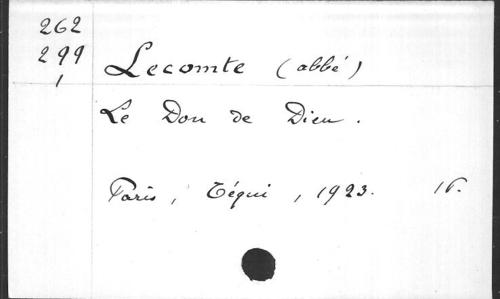 262
299
1
Lecomte (abbé)
Le Don de Dieu.
Paris, Téqui, 1923. 16.